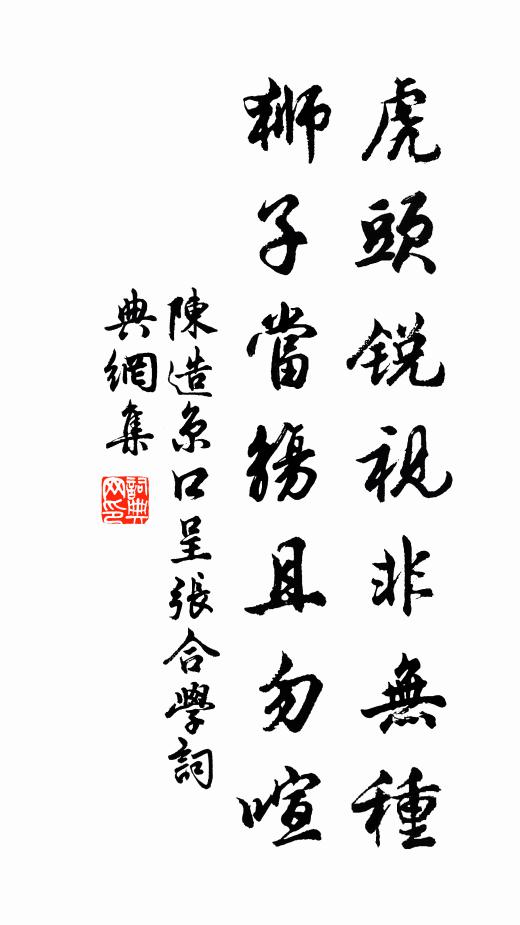 虎頭銳視非無種
獅子當觴且勿喧
陳造京口呈張合學詞
典網集
詞典
网印